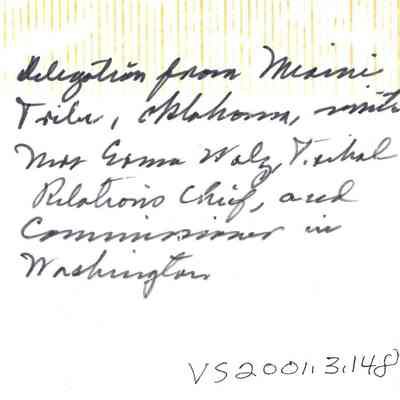 Delegation from Miami
Tribe, Oklahoma, with
Mrs Erma Walz, Tribal
Relations Chief, and
Commissioner in
Washington
VS2001.3.148